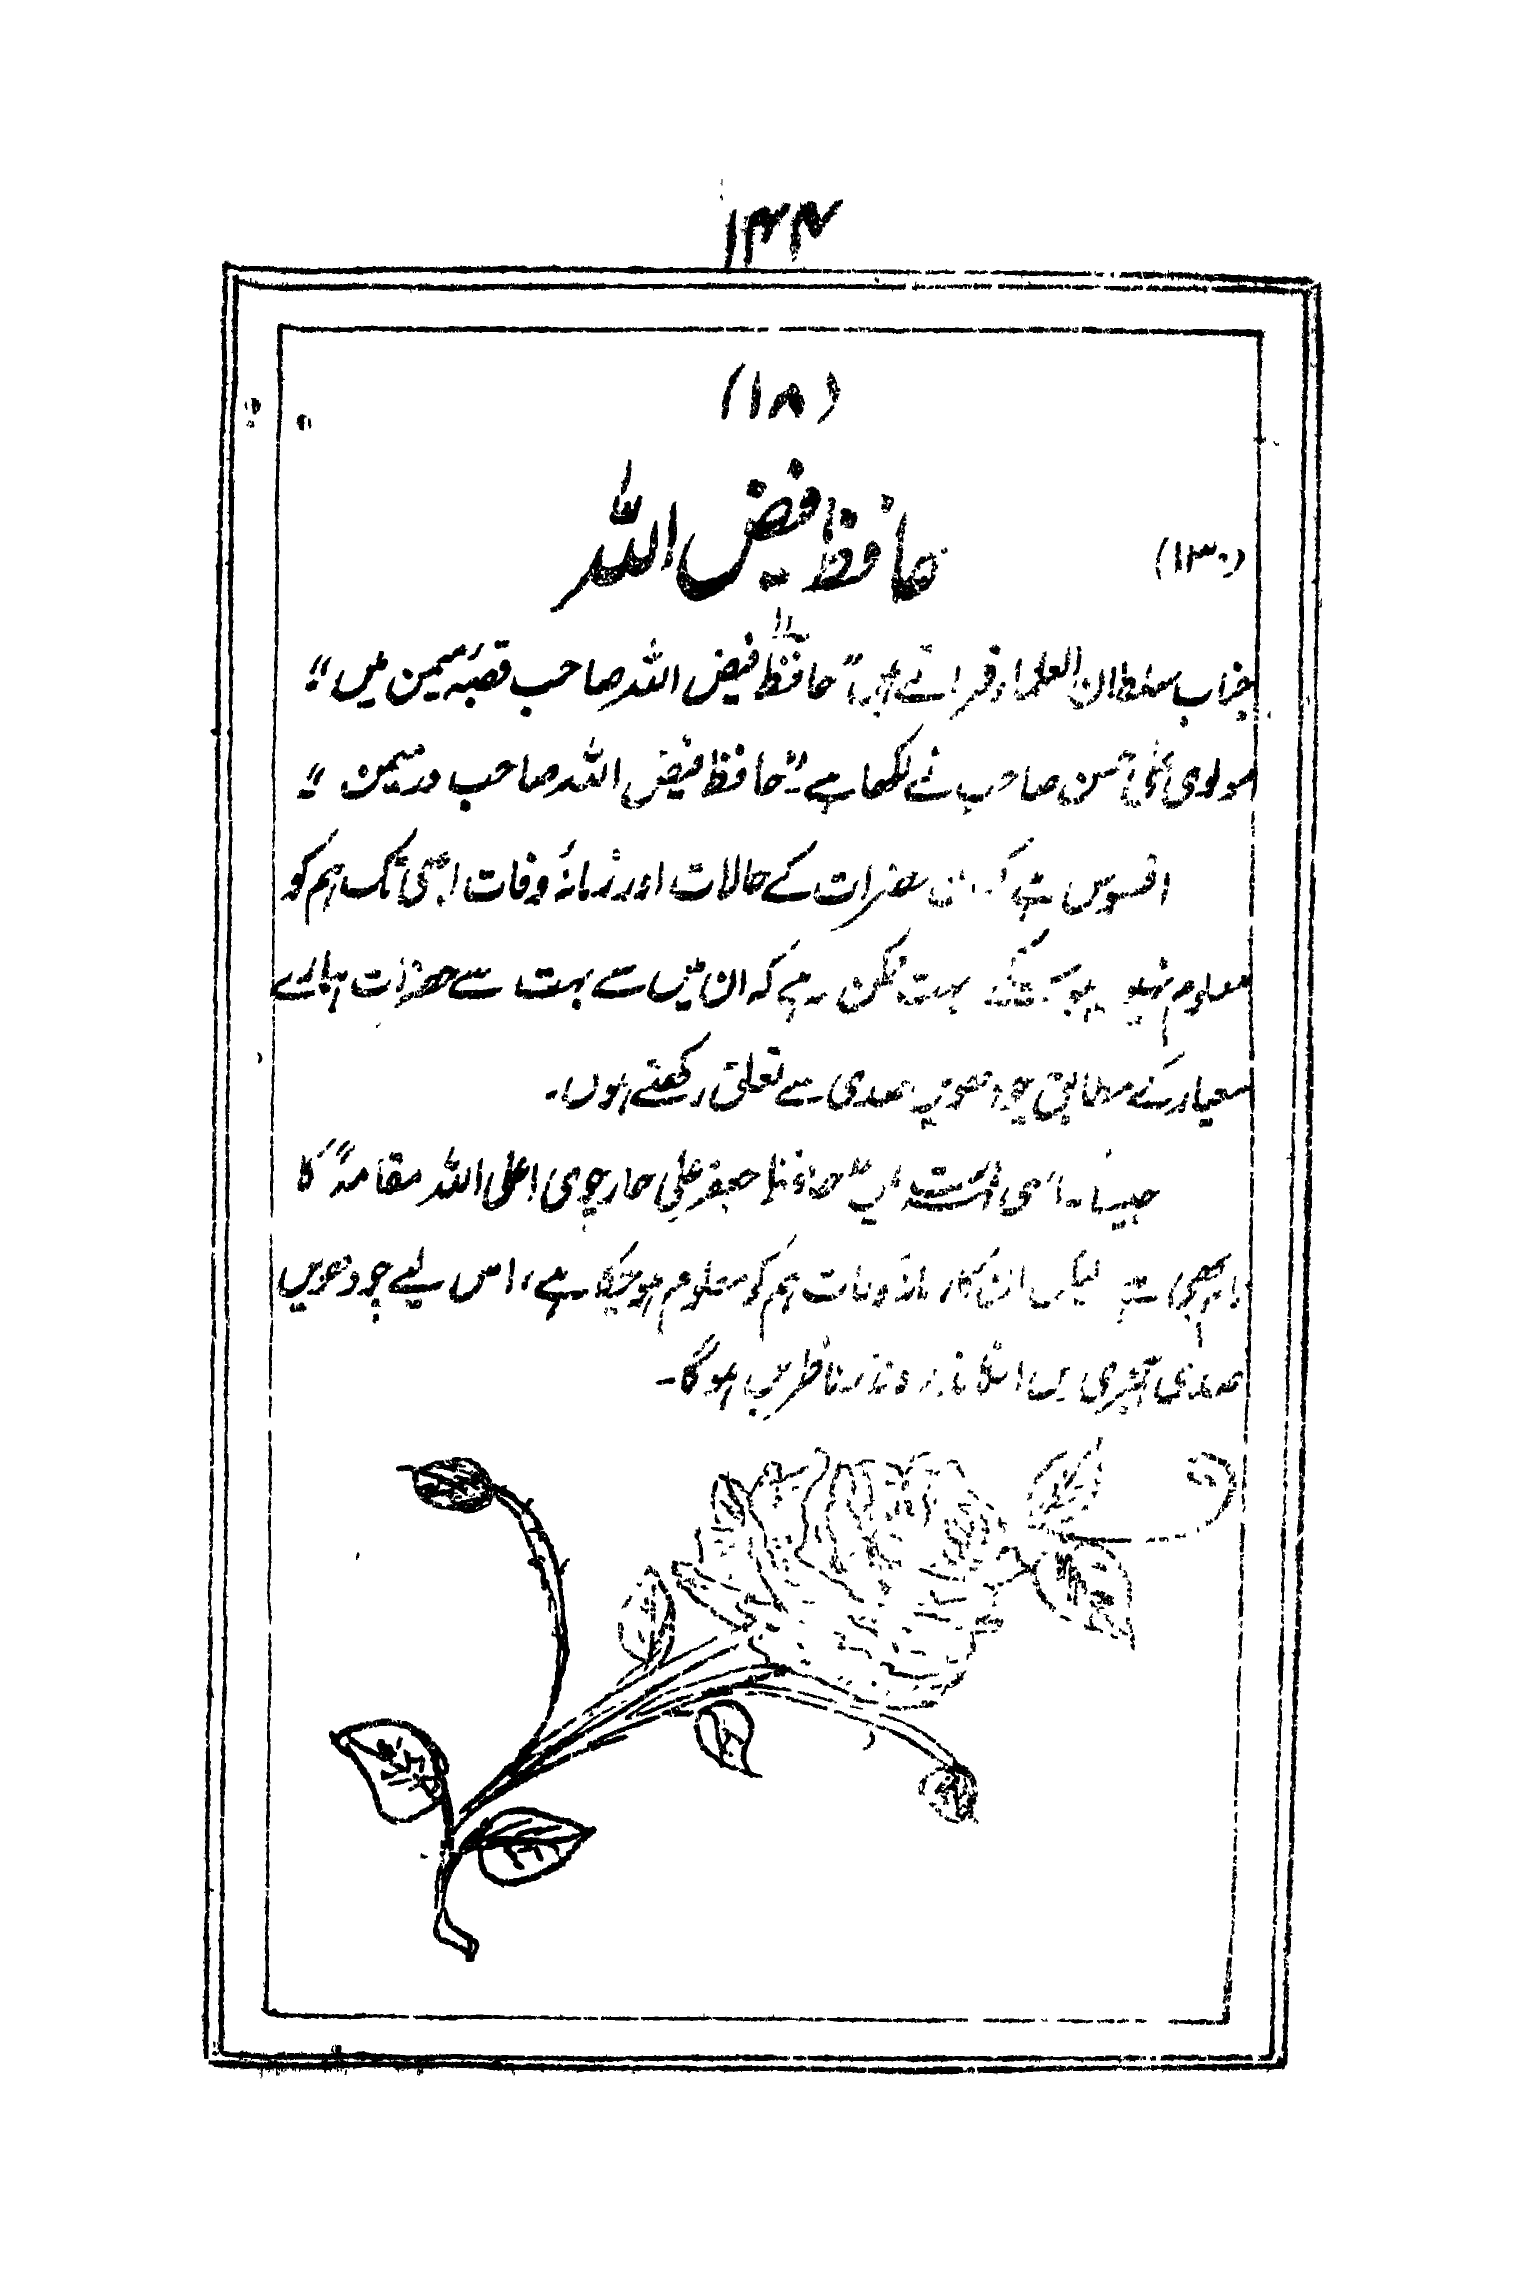 ۱۴۴
(۱۸)
حافظ فیض اللہ
(۱۳۰)
جناب سلطان العلماء فرماتے ہیں "حافظ فیض اللہ صاحب قصبۂ میمن میں"
مولوی صاحب نے لکھا ہے۔ "حافظ فیض اللہ صاحب در میمن"
افسوس ہے کہ ان حضرات کے حالات اور زمانۂ وفات ابھی تک ہم کو
معلوم نہیں ہو سکے۔ بہت ممکن ہے کہ ان میں سے بہت سے حضرات ہمارے
معیار کے مطابق چودھویں صدی سے تعلق رکھتے ہوں۔
جیسا اسی میں "حافظ جعفر علی جارچوی اعلی اللہ مقامہ" کا
نام بھی ہے لیکن ان کا زمانۂ وفات ہم کو معلوم ہو چکا ہے، اس لیے چودھویں
صدی ہجری میں انکا تذکرہ نذر ناظرین ہوگا۔